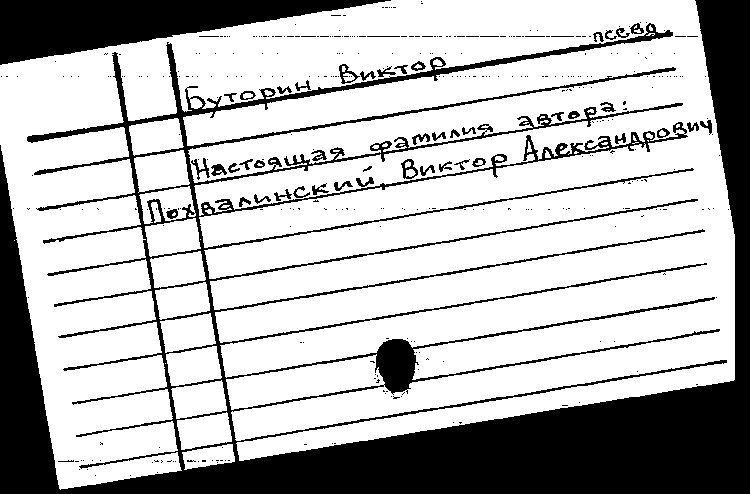 псевд.
Буторин, Виктор
Настоящая фамилия автора:
Похвалинский, Виктор Александрович